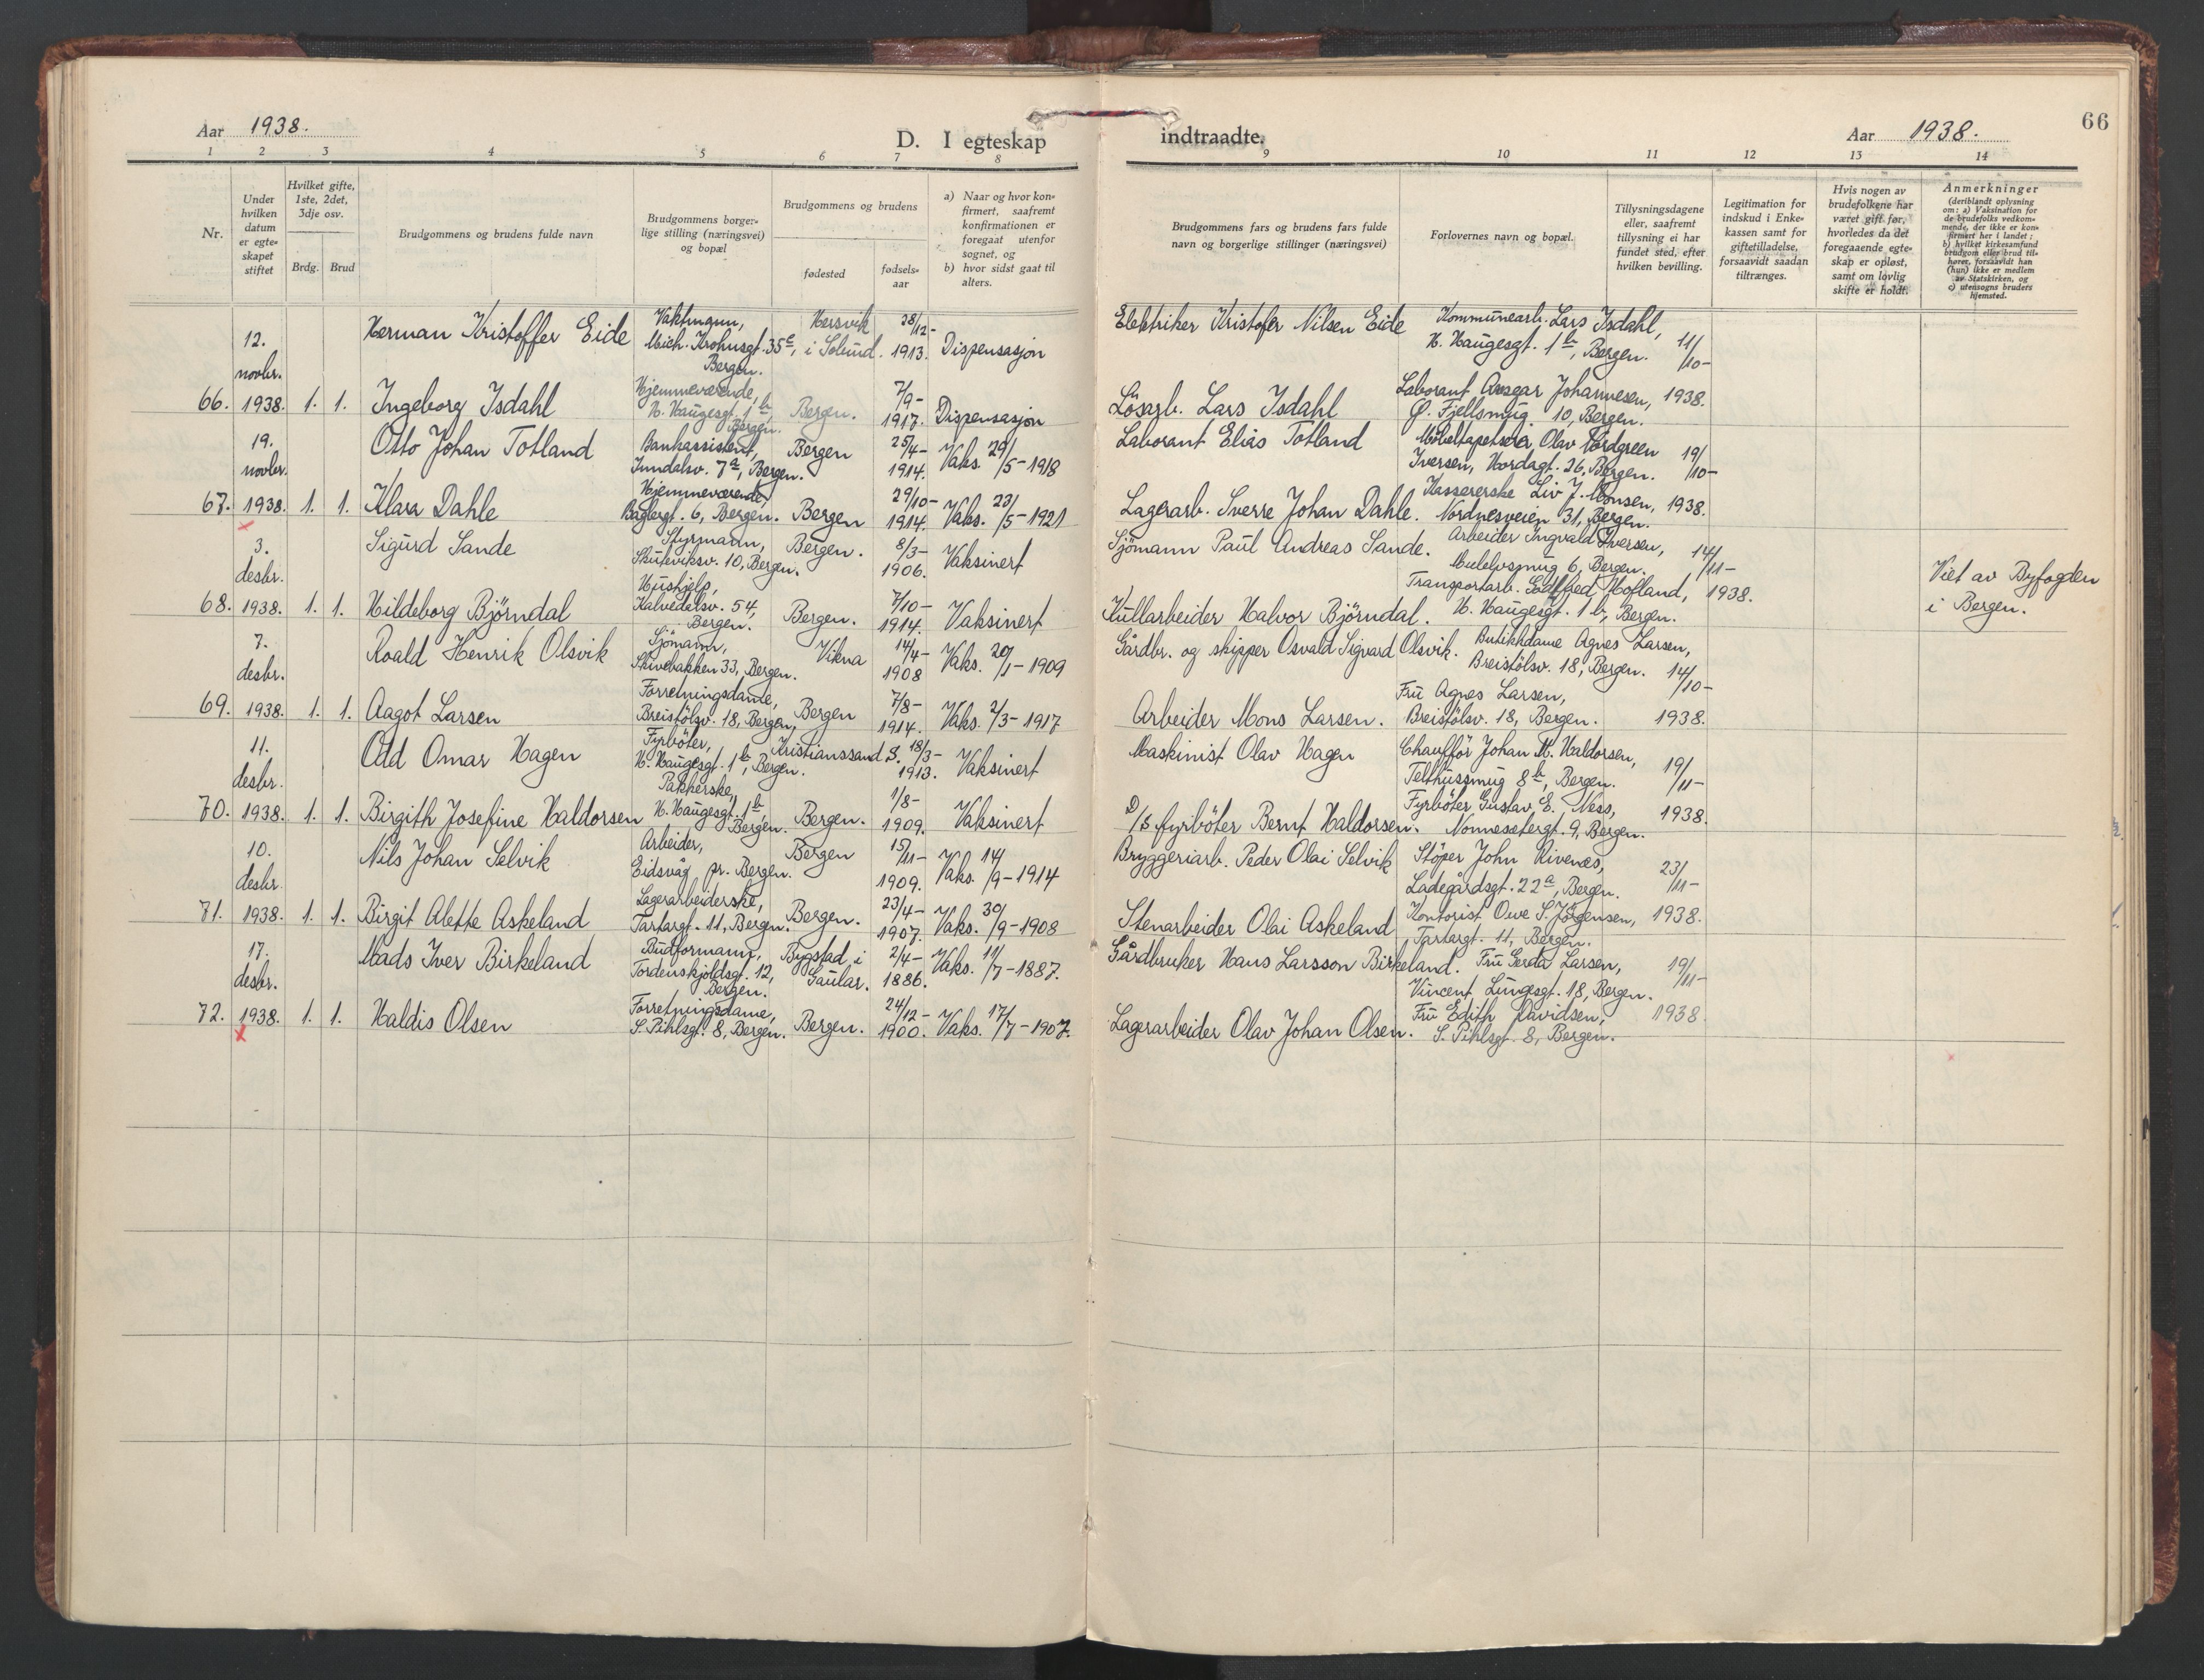 Aar 1938.
D. I egteskap
indtraadte.
Aar 1938.
66
1 2 3 4 5 6 7 8 9 10 11 12 13 14
Nr.
Under hvilken datum er egteskapet stiftet
Hvilket gifte, 1ste, 2det, 3dje osv.
Brdg. Brud
Brudgommens og brudens fulde navn
Brudgommens borgerlige stilling (næringsvei) og bopæl
Brudgommens og brudens
fødested
fødselsaar
a) Naar og hvor konfirmert, saafremt konfirmationen er foregaat utenfor sognet, og
b) hvor sidst gaat til alters.
Brudgommens fars og brudens fars fulde navn og borgerlige stillinger (næringsvei)
Forlovernes navn og bopæl.
Tillysningsdagene eller, saafremt tillysning ei har fundet sted, efter hvilken bevilling.
Legitimation for indskud i Enkekassen samt for giftetilladelse, forsaavidt saadan tiltrænges.
Hvis nogen av brudefolkene har været gift før, hvorledes da det foregaaende egteskap er opløst, samt om lovlig skifte er holdt.
Anmerkninger
(deriblandt oplysning om: a) Vaksination for de brudefolks vedkommende, der ikke er konfirmert her i landet; b) hvilket kirkesamfund brudgom eller brud tilhører, forsaavidt han (hun) ikke er medlem av Statskirken, og c) utensogns bruders hjemsted.
66. 12. novbr. 1938. 1. 1.
Herman Kristoffer Eide Vaktmann, Mich. Krohnsgt. 35c, Bergen. Hersvik i Solund. 28/12-1913. Dispensasjon
Elektriker Kristofer Nilsen Eide Kommunearb. Lars Isdahl, H. Haugesgt. 1b, Bergen. 11/10-1938.
Ingeborg Isdahl Hjemmeværende, H. Haugesgt. 1b, Bergen. Bergen. 7/9-1917. Dispensasjon
Lösarb. Lars Isdahl Laborant Ansgar Johannesen, Ø. Fjellsmug 10, Bergen.
67. 19. novbr. 1938. 1. 1.
Otto Johan Totland Bankassistent, 7a, Bergen. Bergen 25/4-1914. Vaks. 29/5-1918
Laborant Elias Totland Möbeltapetserer Olav Nordgreen Iversen, Hordagt. 26, Bergen. 19/10-1938.
Klara Dahle Hjemmeværende, Baglergt. 6, Bergen. Bergen 29/10-1914. Vaks. 23/5-1921
Lagerarb. Sverre Johan Dahle. Kassererske Liv J. Monsen, Nordnesveien 31, Bergen.
68. 3. desbr. 1938. 1. 1.
Sigurd Sande Styrmann, Skuteviksv. 10, Bergen. Bergen. 8/3-1906. Vaksinert
Sjömann Paul Andreas Sande. Arbeider Ingvald Iversen, Mulelvsmug 6, Bergen. 14/11-1938.
Viet av Byfogden i Bergen.
Hildeborg Björndal Hushjelp, Kalvedalsv. 54, Bergen. Bergen. 7/10-1914. Vaksinert
Kullarbeider Halvor Björndal. Transportarb. Gotfred Hofland, H. Haugesgt. 1b, Bergen.
69. 7. desbr. 1938. 1. 1.
Roald Henrik Olsvik Sjömann, Skivebakken 33, Bergen. Vikna 14/4-1908 Vaks. 20/1-1909
Gårdbr. og skipper Osvald Sigvard Olsvik. Butikkdame Agnes Larsen, Breistölsv. 18, Bergen. 14/10-1938.
Aagot Larsen Forretningsdame, Breistölsv. 18, Bergen, Bergen 7/8-1914. Vaks. 2/3-1917
Arbeider Mons Larsen. Fru Agnes Larsen, Breistölsv. 18, Bergen.
70. 11. desbr. 1938. 1. 1.
Odd Omar Hagen Fyrböter, H. Haugesgt. 1b, Bergen. Kristianssand S. 18/3-1913. Vaksinert
Maskinist Olav Hagen Chaufför Johan M. Haldorsen, Telthussmug 8b, Bergen. 19/11-1938.
Birgith Josefine Haldorsen Pakkerske, H. Haugesgt. 1b, Bergen. Bergen. 1/8-1909. Vaksinert
D/S fyrböter Bernt Haldorsen. Fyrböter Gustav E. Ness, Nonnesetergt. 9, Bergen.
71. 10. desbr. 1938. 1. 1.
Nils Johan Selvik Arbeider, Eidsvåg pr. Bergen. Bergen 15/11-1909. Vaks. 14/9-1914
Bryggeriarb. Peder Olai Selvik Stöper John Rivenæs, Ladegårdsgt. 22a, Bergen. 23/11-1938.
Birgit Alette Askeland Lagerarbeiderske, Tartargt. 11, Bergen. Bergen. 23/4-1907. Vaks. 30/9-1908
Stenarbeider Olai Askeland Kontorist Owe S. Jörgensen, Tartargt. 11, Bergen.
72. 17. desbr. 1938. 1. 1.
Mads Iver Birkeland Budformann, Tordenskjoldsgt. 12, Bergen. Bygstad i Gaular. 2/4-1886. Vaks. 11/7-1887.
Gårdbruker Hans Larsson Birkeland. Fru Gerda Larsen, Vincent Lungesgt. 18, Bergen. 19/11-1938
Haldis Olsen Forretningsdame, S. Pihlsgt. 8, Bergen. Bergen. 24/12-1900. Vaks. 17/7-1907.
Lagerarbeider Olav Johan Olsen. Fru Edith Davidsen, S. Pihlsgt. 8, Bergen.